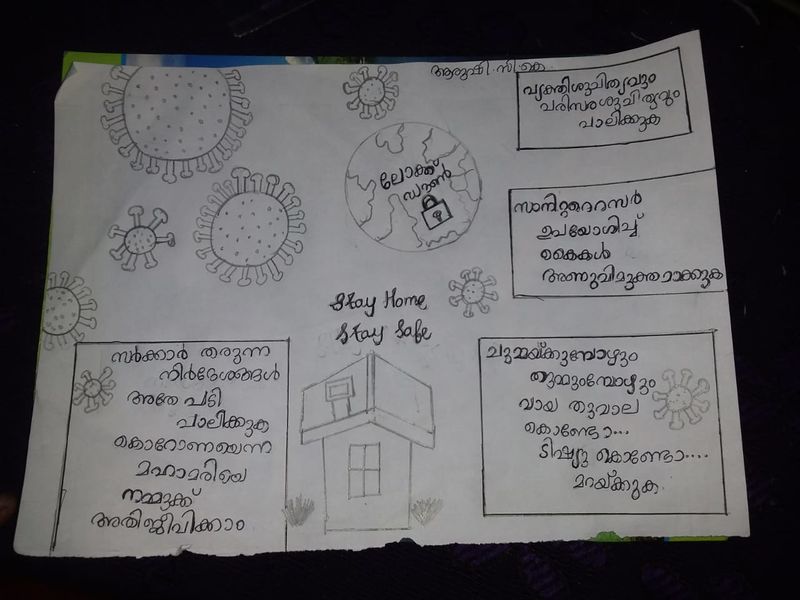 ആരുഷി. സി. കെ
വ്യക്തിശുചിത്വവും
പരിസരശുചിത്വവും
പാലിക്കുക
ലോക്ക്
ഡൗൺ
സാനിറ്റൈസർ
ഉപയോഗിച്ച്
കൈകൾ
അണുവിമുക്തമാക്കുക
Stay Home
Stay Safe
സർക്കാർ തരുന്ന
നിർദ്ദേശങ്ങൾ
അതേ പടി
പാലിക്കുക
കൊറോണയെന്ന
മഹാമാരിയെ
നമ്മുക്ക്
അതിജീവിക്കാം
ചുമ്മയ്ക്കുമ്പോഴും
തുമ്മുംമ്പോഴും
വായ തുവാല
കൊണ്ടോ...
ടിഷ്യു കൊണ്ടോ....
മറയ്ക്കുക